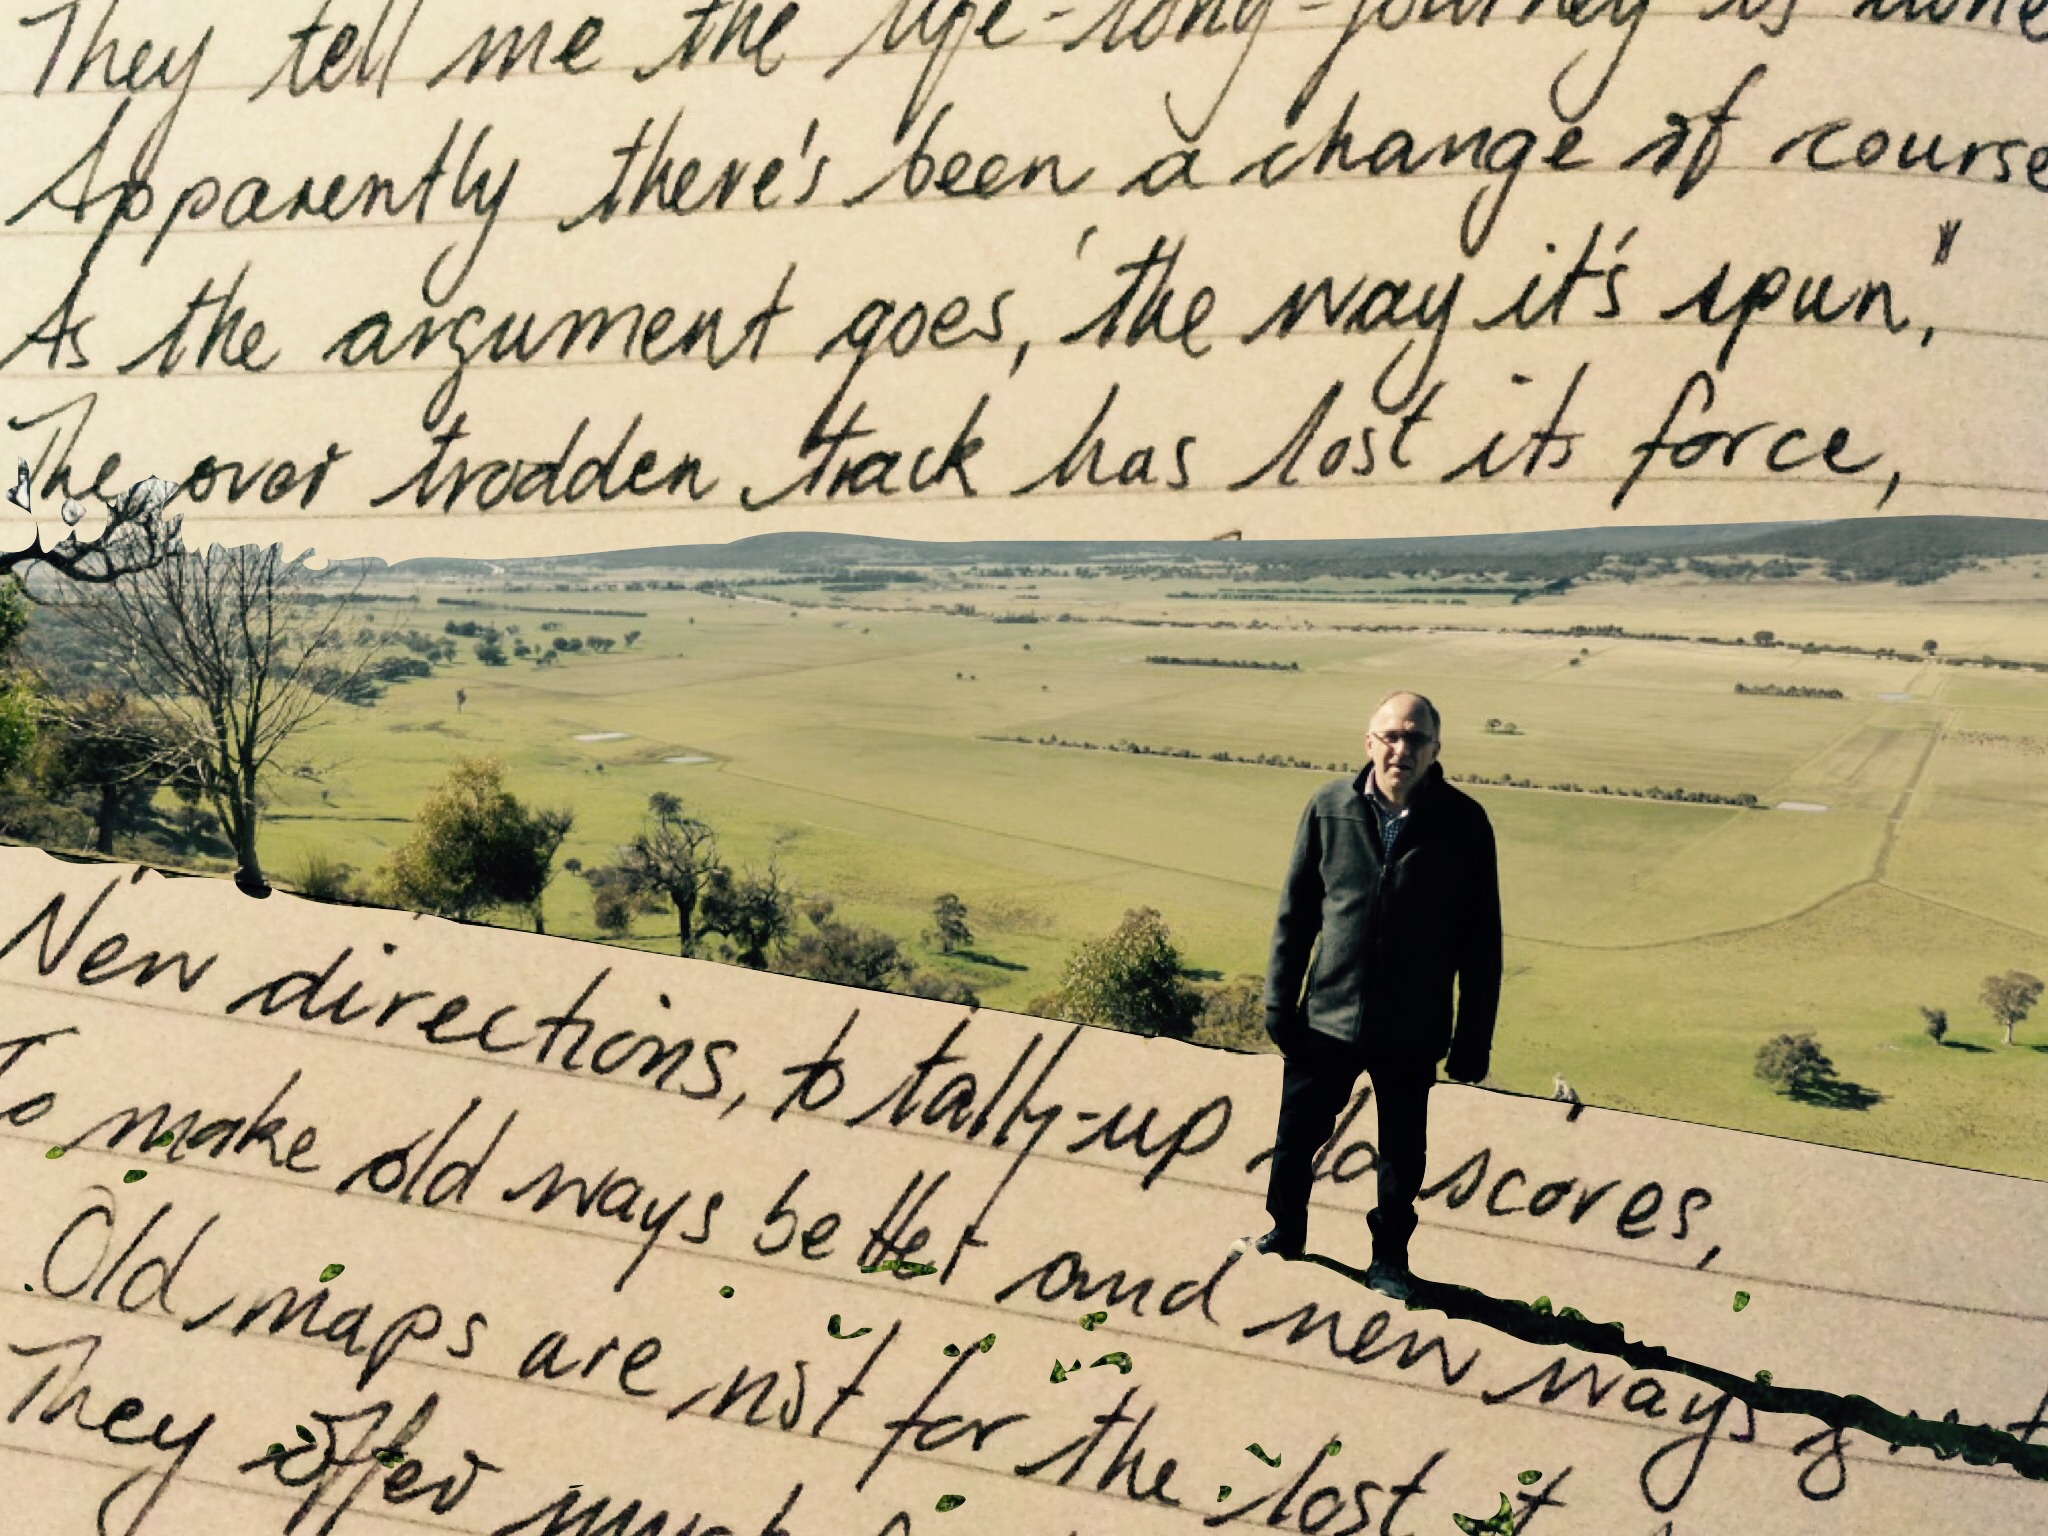 They tell me the life-long-journey is done
Apparently there's been a change of course
As the argument goes, 'the way it's spun,'
The over trodden track has lost its force,
New directions, to tally-up scores,
To make old ways better and new ways
Old maps are not for the lost
They offer much